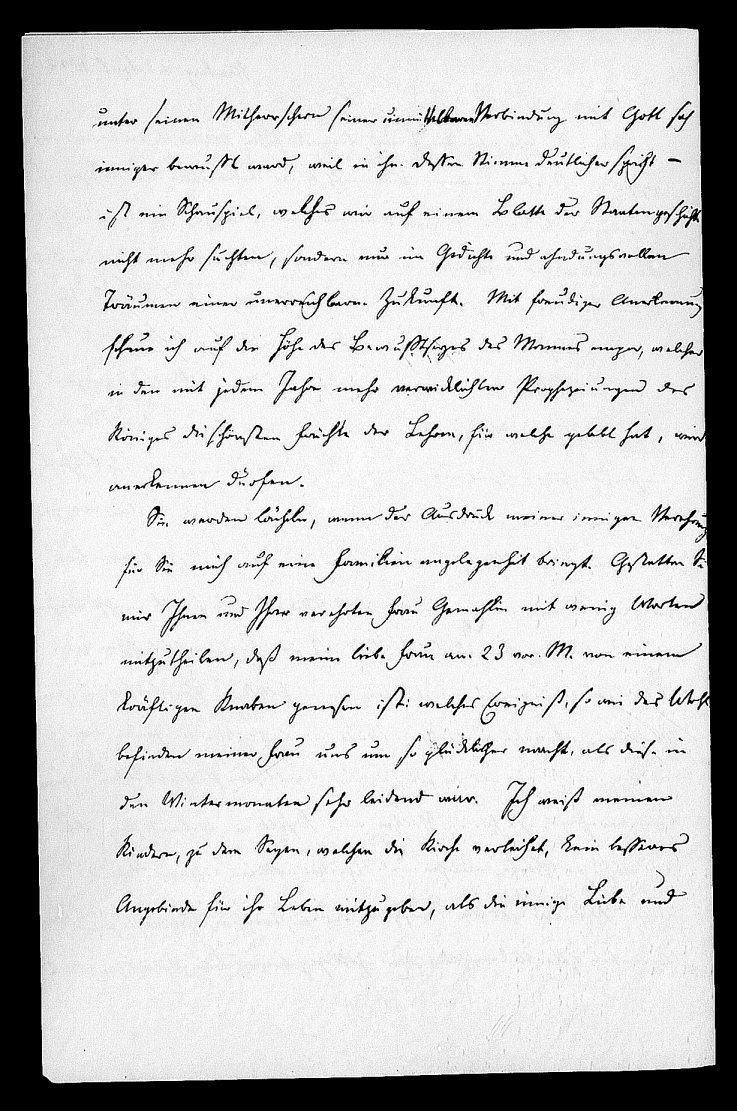 unter seinen Mitherrschern seiner unmittelbaren Verbindung mit Gott sich
inniger bewußt ward, weil in ihn dessen Stimme deutlicher spricht –
ist ein Schauspiel, welches wir auf einem Blatte der Staatengeschichte
nicht mehr suchten, sondern nur im Gedichte und ahndungsvollen
Träumen einer unerreichbaren Zukunft. Mit freudiger Anerkennung
schaue ich auf die Höhe des Bewußtseyns des Mannes empor, welcher
in den mit jedem Jahre mehr verwirklichten Prophezeiungen des
Königes die schönsten Früchte der Lehren, für welche gelebt hat, wird
anerkennen dürfen.
Sie werden lächeln, wenn der Ausdruck meiner innigen Verehrung
für Sie mich auf eine Familienangelegenheit bringt. Gestatten Sie
mir Ihnen und Ihrer verehrten Frau Gemahlin mit wenig Worten
mitzutheilen, daß meine liebe Frau am 23 vor. M. von einem
kräftigen Knaben genesen ist: welches Ereigniß, so wie das Wohl
befinden meiner Frau uns um so glücklicher macht, als diese in
den Wintermonaten sehr leidend war. Ich weiß meinen
Kindern, zu dem Segen, welchen die Kirche verleihet, kein besseres
Angebinde für ihr Leben mitzugeben, als die innige Liebe und